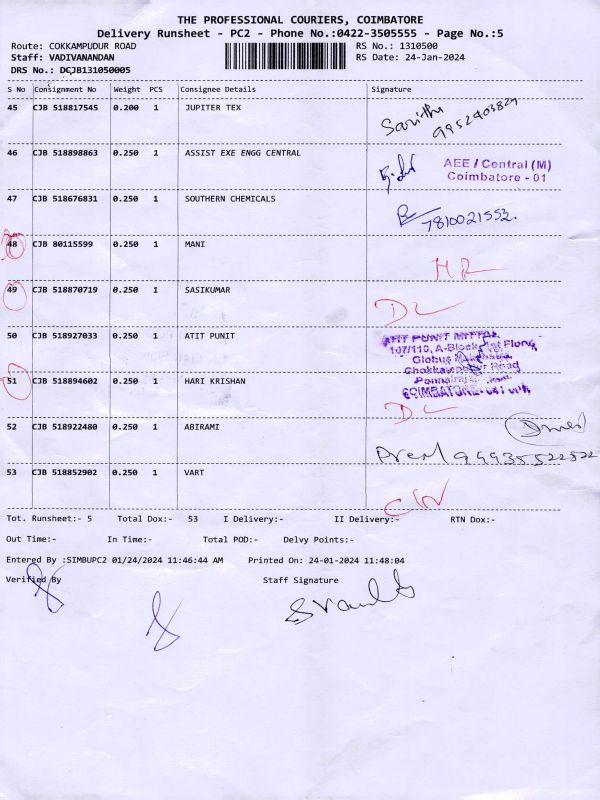 THE PROFESSIONAL COURIERS, COIMBATORE
Delivery Runsheet - PC2 - Phone No.:0422-3505555 - Page No.:5
Route: COKKAMPUDUR ROAD RS No.: 1310500
Staff: VADIVANANDAN RS Date: 24-Jan-2024
DRS No.: DCJB131050005
S No Consignment No Weight PCS Consignee Details Signature
45 CJB 518817545 0.200 1 JUPITER TEX
46 CJB 518898863 0.250 1 ASSIST EXE ENGG CENTRAL
AEE / Central (M)
Coimbatore - 01
47 CJB 518676831 0.250 1 SOUTHERN CHEMICALS
7810021552.
48 CJB 80115599 0.250 1 MANI
49 CJB 518870719 0.250 1 SASIKUMAR
DL
50 CJB 518927033 0.250 1 ATIT PUNIT
ATIT PUNIT MITTAL
107/110, A-Block, 1st Floor,
51 CJB 518894602 0.250 1 HARI KRISHAN
COIMBATORE
DL
52 CJB 518922480 0.250 1 ABIRAMI
Prem
53 CJB 518852902 0.250 1 VART
Tot. Runsheet:- 5 Total Dox:- 53 I Delivery:- II Delivery:- RTN Dox:-
Out Time:- In Time:- Total POD:- Delvy Points:-
Entered By :SIMBUPC2 01/24/2024 11:46:44 AM Printed On: 24-01-2024 11:48:04
Verified By Staff Signature